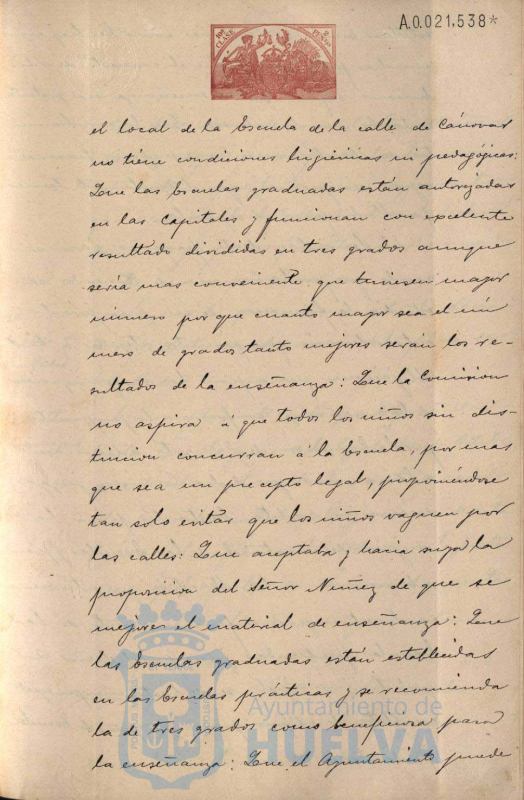 A.0.021,538*
10ª CLASE
2 PESETAS
el local de la Escuela de la calle de Cánovas
no tiene condiciones higiénicas ni pedagógicas:
Que las Escuelas graduadas están autorizadas
en las Capitales y funcionan con excelente
resultado divididas en tres grados aunque
sería mas conveniente que tuviesen mayor
número por que cuanto mayor sea el nú
mero de grados tanto mejores serán los re-
sultados de la enseñanza: Que la Comision
no aspira á que todos los niños sin dis-
tincion concurran á la Escuela, por mas
que sea un precepto legal, proponiéndose
tan solo evitar que los niños vaguen por
las calles: Que aceptaba y hacia suya la
proposicion del Señor Nuñez de que se
mejore el material de enseñanza: Que
las Escuelas graduadas están establecidas
en las Escuelas prácticas y se recomienda
la de tres grados como beneficiosa para
la enseñanza: Que el Ayuntamiento puede
Ayuntamiento de
HUELVA